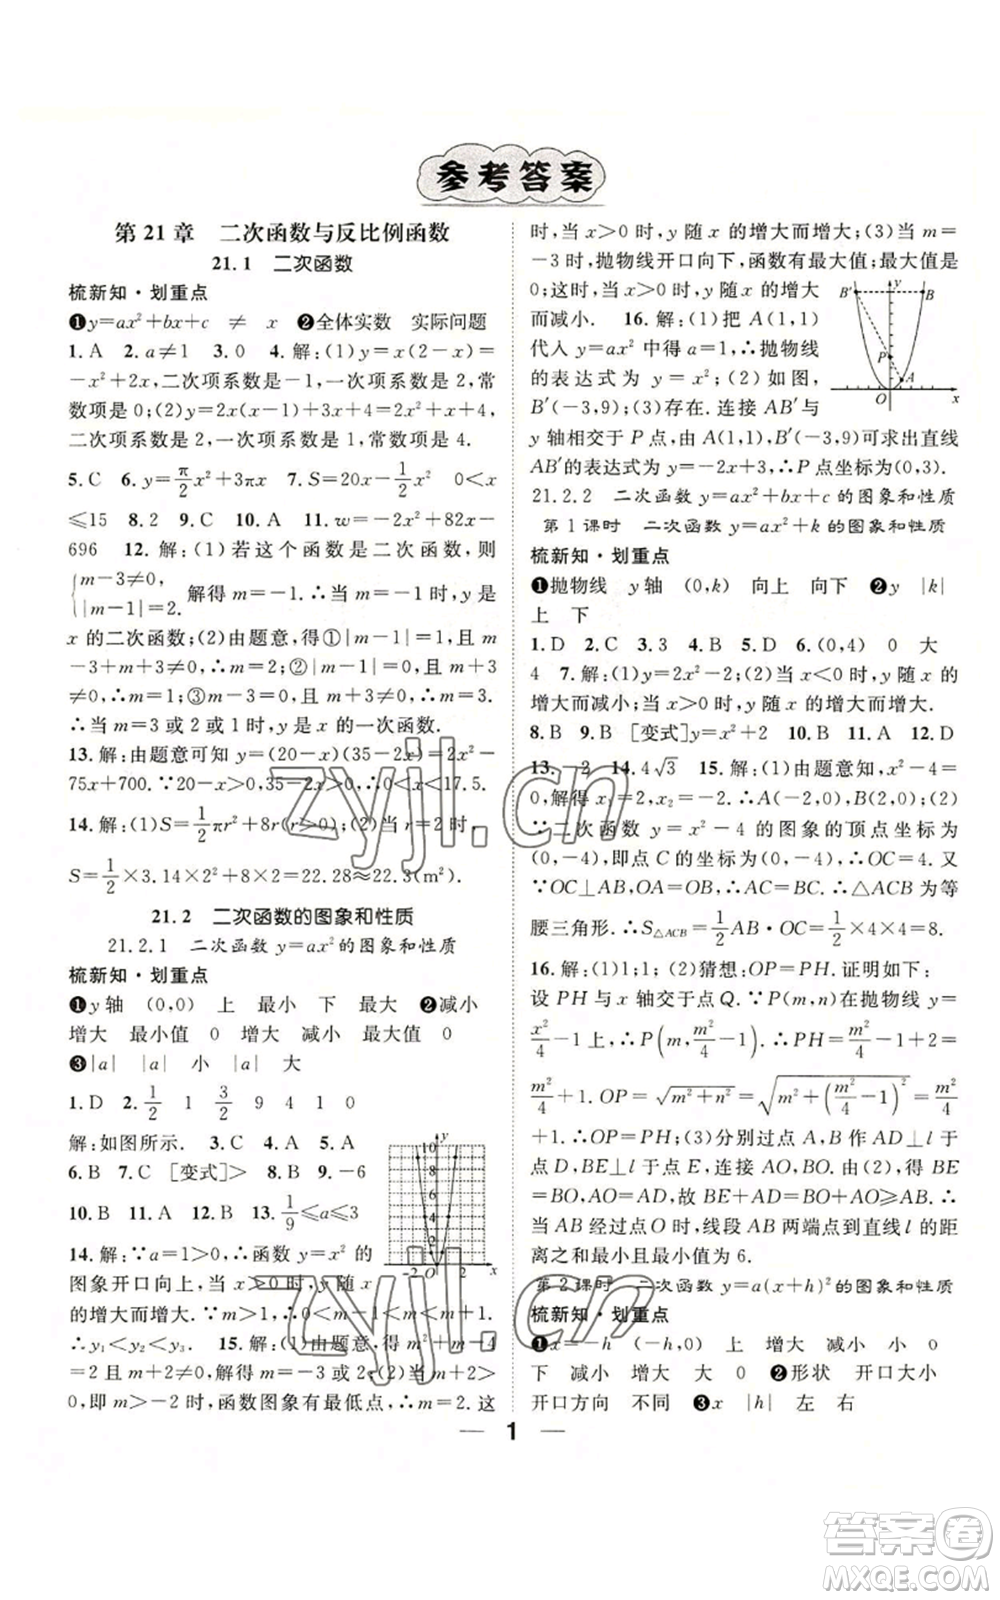 参考答案
第 21 章　二次函数与反比例函数
21.1　二次函数
梳新知·划重点
❶y=ax²+bx+c　≠　x　❷全体实数　实际问题
1. A　2. a≠1　3. 0　4. 解:(1)y=x(2-x)=
-x²+2x,二次项系数是-1,一次项系数是 2,常
数项是 0;(2)y=2x(x-1)+3x+4=2x²+x+4,
二次项系数是 2,一次项系数是 1,常数项是 4.
5. C　6. y=π/2 x²+3πx　7. S=20x-1/2 x²　0<x
≤15　8. 2　9. C　10. A　11. w=-x²+82x-
696　12. 解:(1)若这个函数是二次函数,则
{m-3≠0,
|m-1|=2. 解得 m=-1,∴当 m=-1 时,y 是
x 的二次函数;(2)由题意,得①|m-1|=1 且
m-3+m≠0,∴m=2;②|m-1|=0 且 m-3
≠0,∴m=1;③m-3=0 且 m≠0,∴m=3.
∴当 m=3 或 2 或 1 时,y 是 x 的一次函数.
13. 解:由题意可知 y=(20-x)(35-2x)=2x²-
75x+700.∵20-x>0,35-2x>0,∴0<x<17.5.
14. 解:(1)S=1/2 πr²+8r(r>0);(2)当 r=2 时,
S=1/2×3.14×2²+8×2=22.28≈22.3(m²).
21.2　二次函数的图象和性质
21.2.1　二次函数 y=ax² 的图象和性质
梳新知·划重点
❶y 轴　(0,0)　上　最小　下　最大　❷减小
增大　最小值　0　增大　减小　最大值　0
❸|a|　|a|　小　|a|　大
1. D　2. 1/2　1　3/2　9　4　1　0
解:如图所示.　3. C　4. A　5. B
6. B　7. C　[变式]>　8. B　9. -6
10. B　11. B　12. B　13. 1/9≤a≤3
14. 解:∵a=1>0,∴函数 y=x² 的
图象开口向上,当 x>0 时,y 随 x
的增大而增大.∵m>1,∴0<m-1<m<m+1.
∴y₁<y₂<y₃.　15. 解:(1)由题意,得 m²+m-4
=2 且 m+2≠0,∴m=-3 或 2;(2)当 m+2>0,
即 m>-2 时,函数图象有最低点,∴m=2.这
10
8
6
4
2
-2 O 2 x
y
时,当 x>0 时,y 随 x 的增大而增大;(3)当 m=
-3 时,抛物线开口向下,函数有最大值;最大值是
0;这时,当 x>0 时,y 随 x 的增大
而减小.　16. 解:(1)把 A(1,1)
代入 y=ax² 中得 a=1,∴抛物线
的表达式为 y=x²;(2)如图,
B′(-3,9);(3)存在.连接 AB′与
y 轴相交于 P 点,由 A(1,1),B′(-3,9)可求出直线
AB′的表达式为 y=-2x+3,∴P 点坐标为(0,3).
B′ y B
P
A
O x
21.2.2　二次函数 y=ax²+bx+c 的图象和性质
第 1 课时　二次函数 y=ax²+k 的图象和性质
梳新知·划重点
❶抛物线　y 轴　(0,k)　向上　向下　❷y　|k|
上　下
1. D　2. C　3. 3　4. B　5. D　6. (0,4)　0　大
4　7. 解:(1)y=2x²-2;(2)当 x<0 时,y 随 x 的
增大而减小;当 x>0 时,y 随 x 的增大而增大.
8. B　9. B　[变式]y=x²+2　10. B　11. A　12. D
13. -2　14. 4√3　15. 解:(1)由题意知,x²-4=
0,解得 x₁=2,x₂=-2.∴A(-2,0),B(2,0);(2)
∵二次函数 y=x²-4 的图象的顶点坐标为
(0,-4),即点 C 的坐标为(0,-4),∴OC=4.又
∵OC⊥AB,OA=OB=2,∴AC=BC,∴△ACB 是等
腰三角形,∴S△ACB=1/2 AB·OC=1/2×4×4=8.
16. 解:(1)1;1;(2)猜想:OP=PH.证明如下:
设 PH 与 x 轴交于点 Q.∵P(m,n)在抛物线 y=
x²/4-1 上,∴P(m,m²/4-1),∴PH=m²/4-1+2=
m²/4+1.OP=√(m²+n²)=√(m²+(m²/4-1)²)=m²/4
+1.∴OP=PH;(3)分别过点 A 作 AD⊥l 于
点 D,BE⊥l 于点 E,连接 AO,BO.由(2)可得
BO=BE,AO=AD,故当 AB 过点 O 时,BE+AD=AB.∴
当 AB 经过点 O 时,线段 AB 两端点到直线 l 的距
离之和最小且最小值为 6.
第 2 课时　二次函数 y=a(x+h)² 的图象和性质
梳新知·划重点
❶x=-h　(-h,0)　上　增大　减小　小　0
下　减小　增大　大　0　❷形状　开口大小
开口方向　不同　❸x　|h|　左　右
1
zyjl.cn
zyjl.cn
答案圈
MXQE.COM